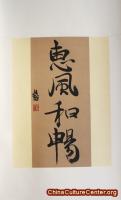 惠風和暢
www.ChinaCultureCenter.org